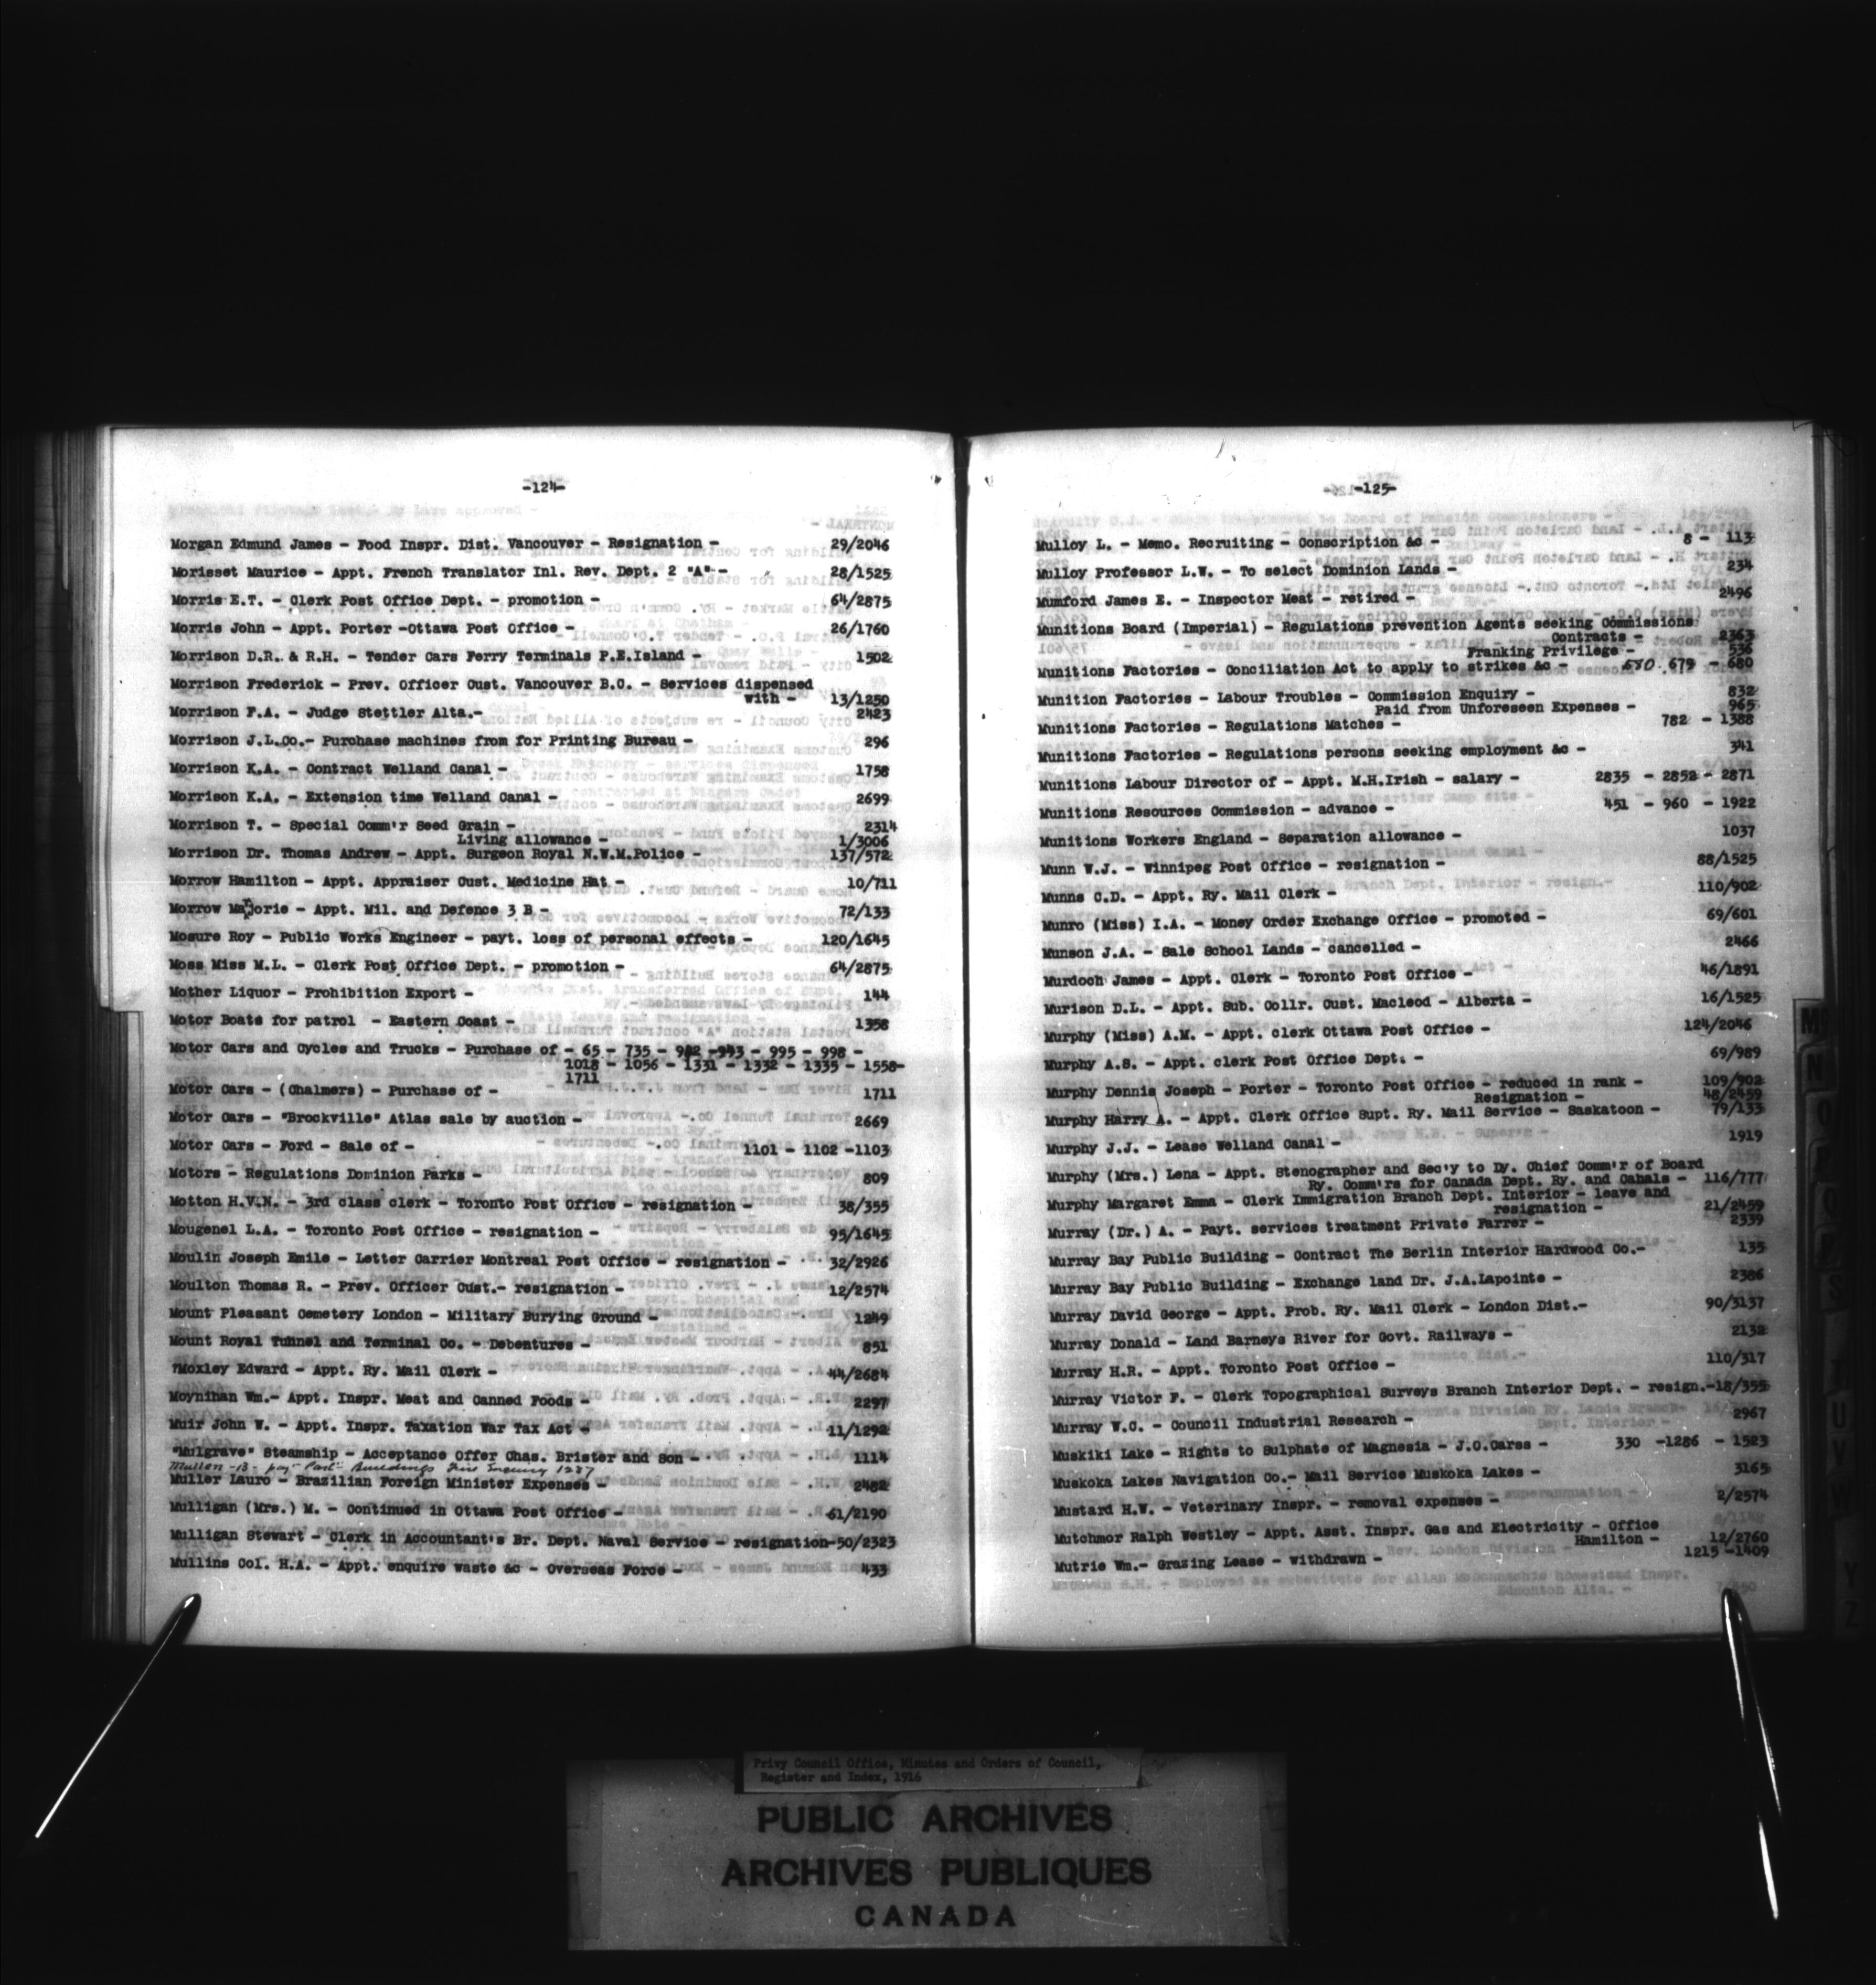 -124-
Morgan Edmund James - Food Inspr. Dist. Vancouver - Resignation - 29/2046
Morisset Maurice - Appt. French Translator Inl. Rev. Dept. 2 "A" - 28/1525
Morris E.T. - Clerk Post Office Dept. - promotion - 64/2875
Morris John - Appt. Porter -Ottawa Post Office - 26/1760
Morrison D.R. & R.H. - Tender Cars Ferry Terminals P.E.Island - 1502
Morrison Frederick - Prev. Officer Cust. Vancouver B.C. - Services dispensed
with - 13/1250
Morrison F.A. - Judge Stettler Alta.- 2423
Morrison J.L.Co.- Purchase machines from for Printing Bureau - 296
Morrison K.A. - Contract Welland Canal - 1758
Morrison K.A. - Extension time Welland Canal - 2699
Morrison T. - Special Comm'r Seed Grain - 2314
Living allowance - 1/3006
Morrison Dr. Thomas Andrew - Appt. Surgeon Royal N.W.M.Police - 137/572
Morrow Hamilton - Appt. Appraiser Cust. Medicine Hat - 10/711
Morrow Marjorie - Appt. Mil. and Defence 3 B - 72/133
Mosure Roy - Public Works Engineer - payt. loss of personal effects - 120/1645
Moss Miss M.L. - Clerk Post Office Dept. - promotion - 64/2875
Mother Liquor - Prohibition Export - 144
Motor Boats for patrol - Eastern Coast - 1358
Motor Cars and Cycles and Trucks - Purchase of - 65 - 735 - 982 -993 - 995 - 998 -
1018 - 1056 - 1331 - 1332 - 1335 - 1558-
1711
Motor Cars - (Chalmers) - Purchase of - 1711
Motor Cars - "Brockville" Atlas sale by auction - 2669
Motor Cars - Ford - Sale of - 1101 - 1102 -1103
Motors - Regulations Dominion Parks - 809
Motton H.V.N. - 3rd class clerk - Toronto Post Office - resignation - 38/355
Mougenel L.A. - Toronto Post Office - resignation - 95/1645
Moulin Joseph Emile - Letter Carrier Montreal Post Office - resignation - 32/2926
Moulton Thomas R. - Prev. Officer Cust.- resignation - 12/2574
Mount Pleasant Cemetery London - Military Burying Ground - 1249
Mount Royal Tunnel and Terminal Co. - Debentures - 851
Moxley Edward - Appt. Ry. Mail Clerk - 44/2684
Moynihan Wm.- Appt. Inspr. Meat and Canned Foods - 2297
Muir John W. - Appt. Inspr. Taxation War Tax Act - 11/1292
"Mulgrave" Steamship - Acceptance Offer Chas. Brister and Son - 1114
Mullen -B- pay- Parl- Buildings Fire Enquiry 1237
Muller Lauro - Brazilian Foreign Minister Expenses - 2482
Mulligan (Mrs.) M. - Continued in Ottawa Post Office - 61/2190
Mulligan Stewart - Clerk in Accountant's Br. Dept. Naval Service - resignation-50/2323
Mullins Col. H.A. - Appt. enquire waste &c - Overseas Force - 433
-125-
Mulloy L. - Memo. Recruiting - Conscription &c - 8 - 113
Mulloy Professor L.W. - To select Dominion Lands - 234
Mumford James E. - Inspector Meat - retired - 2496
Munitions Board (Imperial) - Regulations prevention Agents seeking Commissions
Contracts - 2363
Franking Privilege - 536
Munitions Factories - Conciliation Act to apply to strikes &c - 680 679 - 680
Munition Factories - Labour Troubles - Commission Enquiry - 832
Paid from Unforeseen Expenses - 965
Munitions Factories - Regulations Matches - 782 - 1388
Munitions Factories - Regulations persons seeking employment &c - 341
Munitions Labour Director of - Appt. M.H.Irish - salary - 2835 - 2852 - 2871
Munitions Resources Commission - advance - 451 - 960 - 1922
Munitions Workers England - Separation allowance - 1037
Munn W.J. - Winnipeg Post Office - resignation - 88/1525
Munns C.D. - Appt. Ry. Mail Clerk - 110/902
Munro (Miss) I.A. - Money Order Exchange Office - promoted - 69/601
Munson J.A. - Sale School Lands - cancelled - 2466
Murdoch James - Appt. Clerk - Toronto Post Office - 46/1891
Murison D.L. - Appt. Sub. Collr. Cust. Macleod - Alberta - 16/1525
Murphy (Miss) A.M. - Appt. clerk Ottawa Post Office - 124/2046
Murphy A.S. - Appt. clerk Post Office Dept. - 69/989
Murphy Dennis Joseph - Porter - Toronto Post Office - reduced in rank - 109/902
Resignation - 48/2459
Murphy Harry A. - Appt. Clerk Office Supt. Ry. Mail Service - Saskatoon - 79/133
Murphy J.J. - Lease Welland Canal - 1919
Murphy (Mrs.) Lena - Appt. Stenographer and Sec'y to Dy. Chief Comm'r of Board
Ry. Comm'rs for Canada Dept. Ry. and Cabals - 116/777
Murphy Margaret Emma - Clerk Immigration Branch Dept. Interior - leave and
resignation - 21/2459
Murray (Dr.) A. - Payt. services treatment Private Farrer - 2339
Murray Bay Public Building - Contract The Berlin Interior Hardwood Co.- 135
Murray Bay Public Building - Exchange land Dr. J.A.Lapointe - 2386
Murray David George - Appt. Prob. Ry. Mail Clerk - London Dist.- 90/3137
Murray Donald - Land Barneys River for Govt. Railways - 2132
Murray H.R. - Appt. Toronto Post Office - 110/317
Murray Victor F. - Clerk Topographical Surveys Branch Interior Dept. - resign.-18/355
Murray W.C. - Council Industrial Research - 2967
Muskiki Lake - Rights to Sulphate of Magnesia - J.O.Carss - 330 -1286 - 1523
Muskoka Lakes Navigation Co.- Mail Service Muskoka Lakes - 3165
Mustard H.W. - Veterinary Inspr. - removal expenses - 2/2574
Mutchmor Ralph Westley - Appt. Asst. Inspr. Gas and Electricity - Office
Hamilton - 12/2760
Mutrie Wm.- Grazing Lease - withdrawn - 1215 -1409
M
N
U
V
W
Y
Z
Privy Council Office, Minutes and Orders of Council,
Register and Index, 1916
PUBLIC ARCHIVES
ARCHIVES PUBLIQUES
CANADA